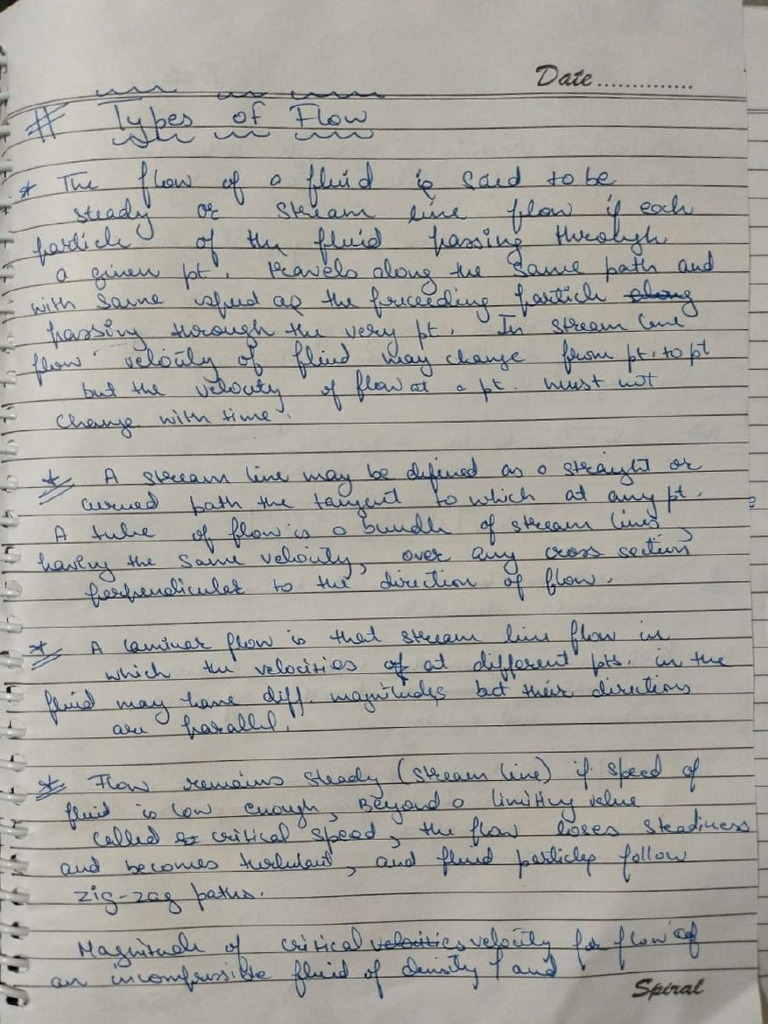 Date..............
# Types of Flow
* The flow of a fluid is said to be
steady or stream line flow if each
particle of the fluid passing through
a given pt. travels along the same path and
with same speed as the preceeding particle along
passing through the very pt. In stream line
flow velocity of fluid may change from pt. to pt
but the velocity of flow at a pt. must not
change with time.
* A stream line may be defined as a straight or
curved path the tangent to which at any pt.
A tube of flow is a bundle of stream lines,
having the same velocity, over any cross section
perpendicular to the direction of flow.
* A laminar flow is that stream line flow in
which the velocities of at different pts. in the
fluid may have diff. magnitudes but their directions
are parallel.
* Flow remains steady (stream line) if speed of
fluid is low enough, Beyond a limiting value
called critical speed, the flow loses steadiness
and becomes turbulant, and fluid particles follow
zig-zag paths.
Magnitude of critical velocities velocity for flow of
an incompressible fluid of density ρ and
Spiral